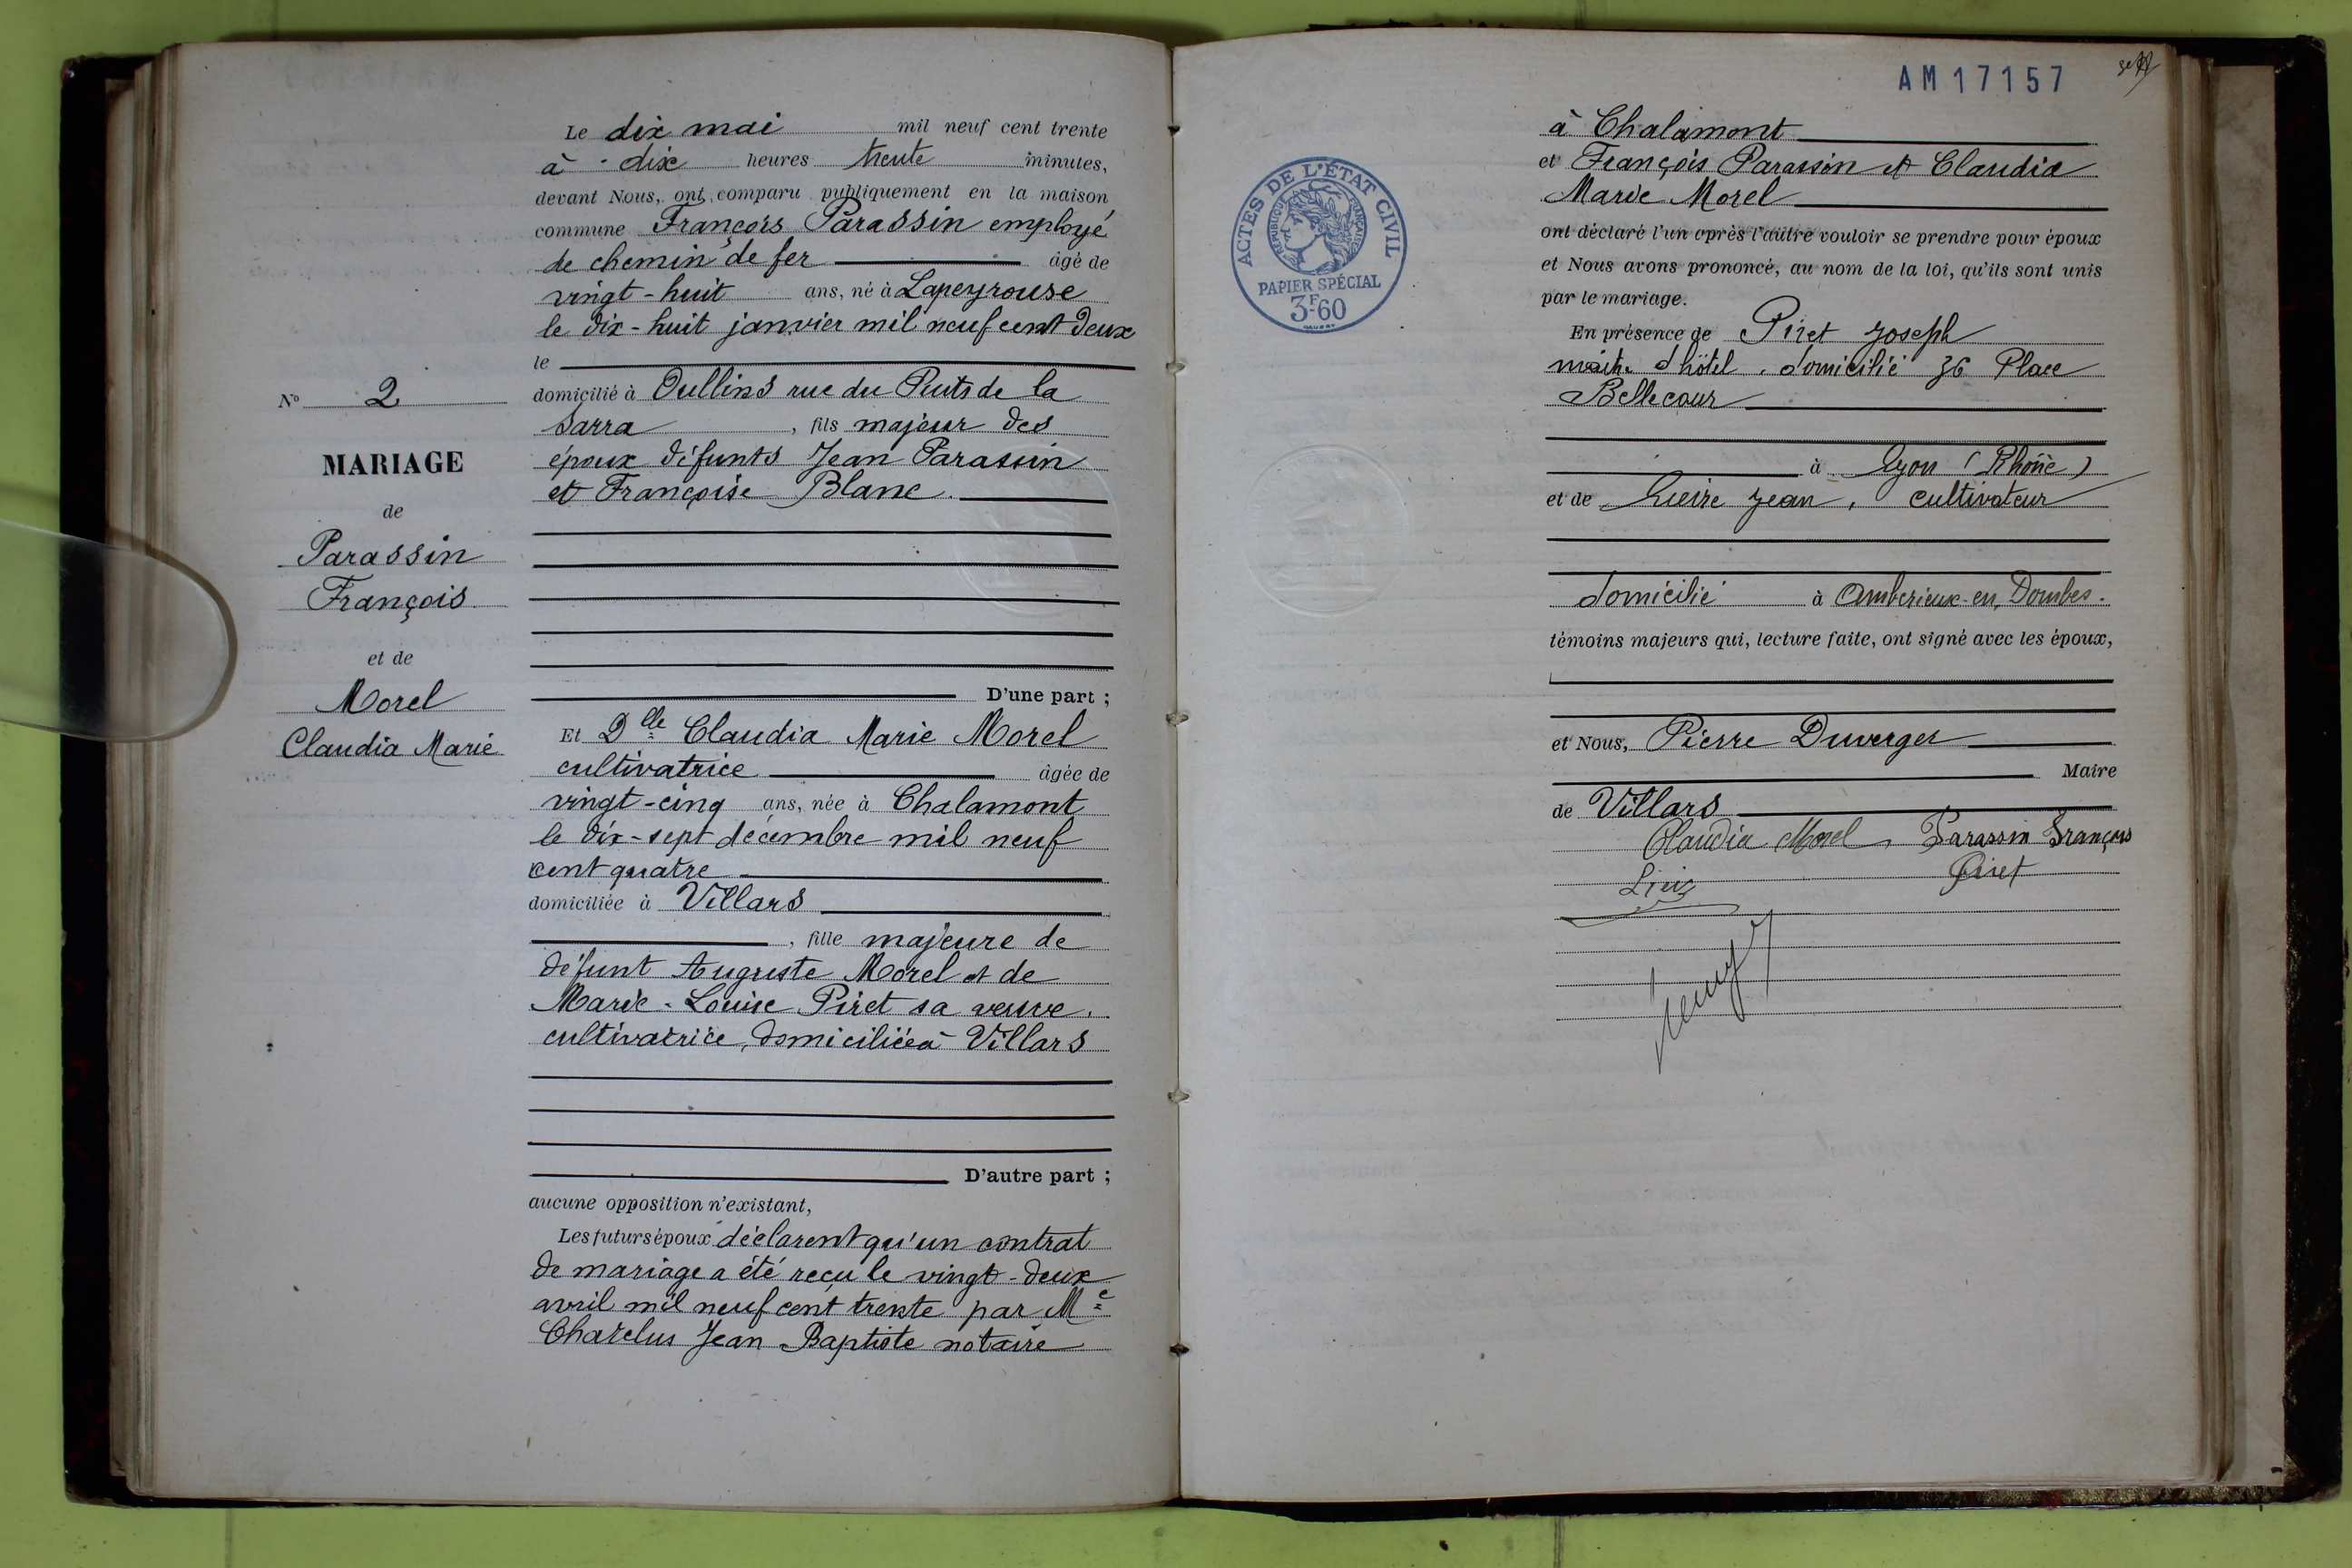 Le dix mai mil neuf cent trente
à dix heures trente minutes,
devant Nous, ont comparu publiquement en la maison
commune François Parassin employé
de chemin de fer âgé de
vingt-huit ans, né à Lapeyrouse
le dix-huit janvier mil neuf cent deux
le
domicilié à Oullins rue du Puits de la
Sarra, fils majeur des
époux défunts Jean Parassin
et Françoise Blanc.
D'une part ;
Et Dlle Claudia Marie Morel
cultivatrice âgée de
vingt-cinq ans, née à Chalamont
le dix-sept décembre mil neuf
cent quatre
domiciliée à Villars
, fille majeure de
défunt Auguste Morel et de
Marie-Louise Piret sa veuve.
cultivatrice, domiciliée à Villars
D'autre part ;
aucune opposition n'existant,
Les futurs époux déclarent qu'un contrat
de mariage a été reçu le vingt-deux
avril mil neuf cent trente par Me
Charelus Jean-Baptiste notaire
No 2
MARIAGE
de
Parassin
François
et de
Morel
Claudia Marie
AM 17157
ACTES DE L'ÉTAT CIVIL
RÉPUBLIQUE FRANÇAISE
PAPIER SPÉCIAL
3F60
à Chalamont
et François Parassin et Claudia
Marie Morel
ont déclaré l'un après l'autre vouloir se prendre pour époux
et Nous avons prononcé, au nom de la loi, qu'ils sont unis
par le mariage.
En présence de Piret Joseph
maître d'hôtel, domicilié 36 Place
Bellecour
à Lyon (Rhône)
et de Jean, cultivateur
domicilié à Ambérieux-en-Dombes.
témoins majeurs qui, lecture faite, ont signé avec les époux,
et Nous, Pierre Duverger
Maire
de Villars
Claudia Morel Parassin François
Piret